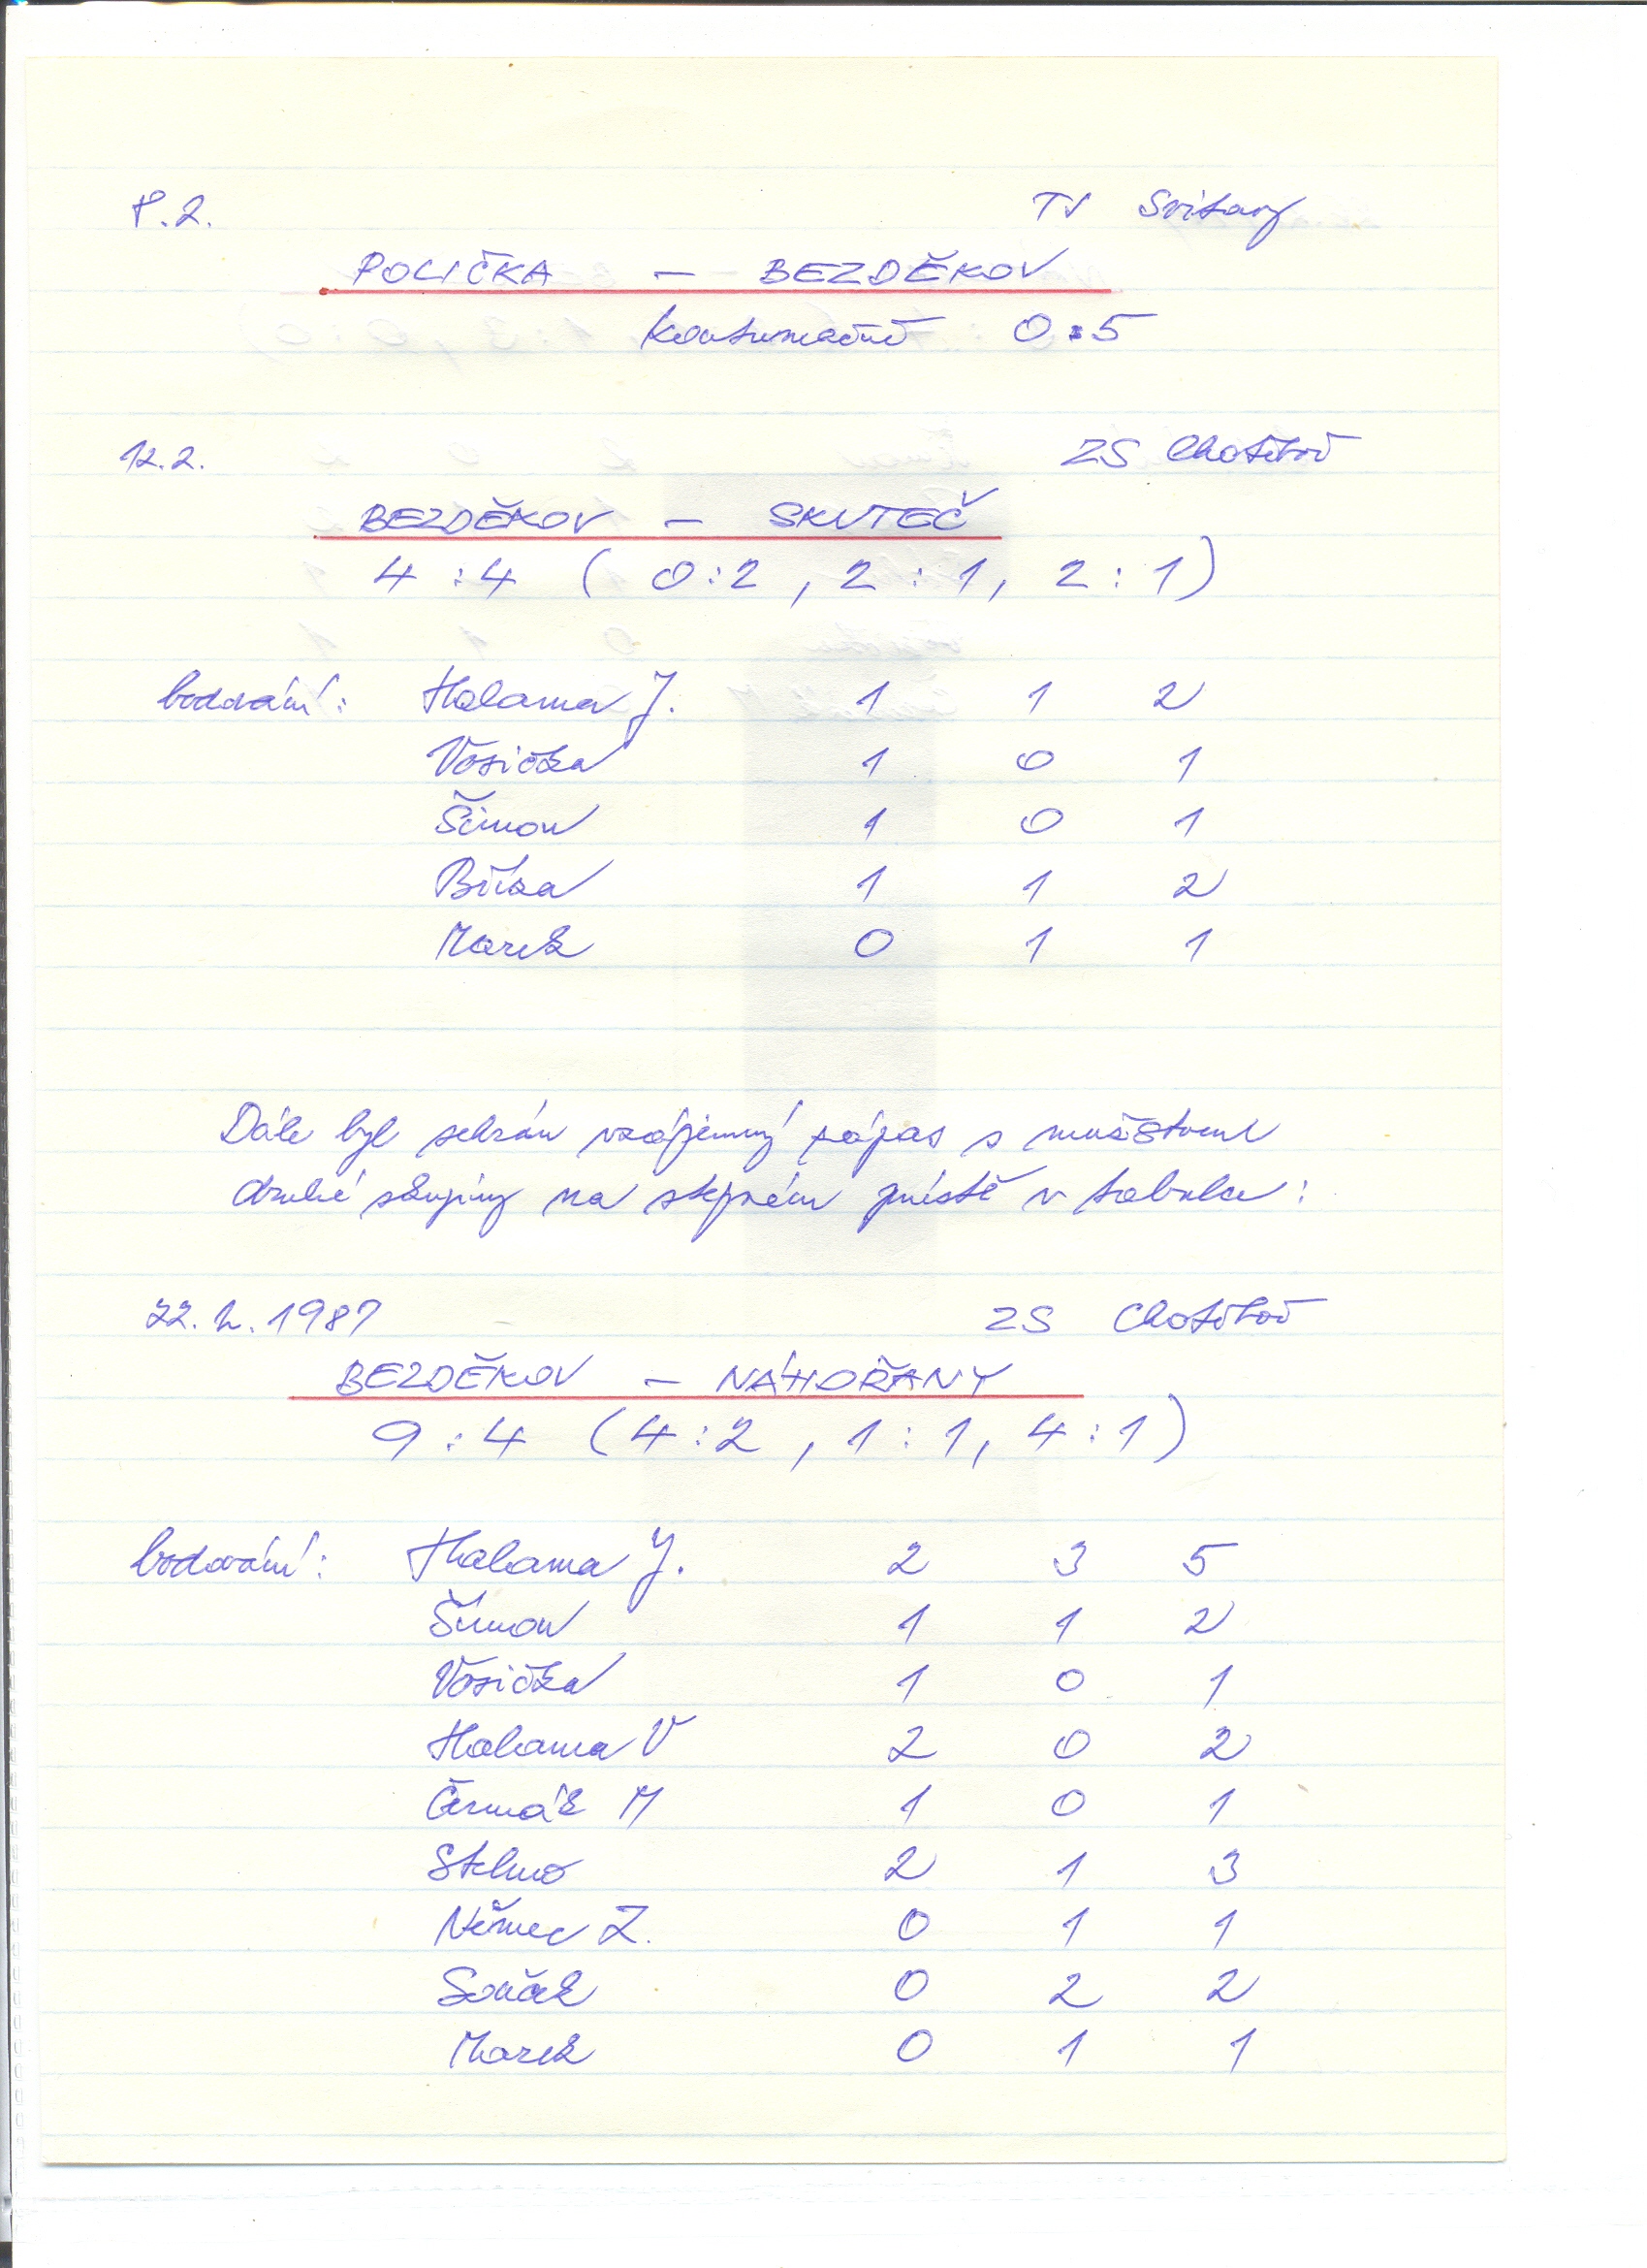 8.2. TJ Svitavy
POLIČKA – BEZDĚKOV
kontumačně 0:5
12.2. ZS Chotěboř
BEZDĚKOV – SKUTEČ
4:4 (0:2, 2:1, 2:1)
bodování: Halama J. 1 1 2
Vosička 1 0 1
Šimon 1 0 1
Bříza 1 1 2
Marek 0 1 1
Dále byl sehrán vzájemný zápas s mužstvem
druhé skupiny na stejném místě v tabulce:
22.2.1987 ZS Chotěboř
BEZDĚKOV – NÁHOŘANY
9:4 (4:2, 1:1, 4:1)
bodování: Halama J. 2 3 5
Šimon 1 1 2
Vosička 1 0 1
Halama V 2 0 2
Čermák M 1 0 1
Stehno 2 1 3
Němec Z. 0 1 1
Souček 0 2 2
Marek 0 1 1